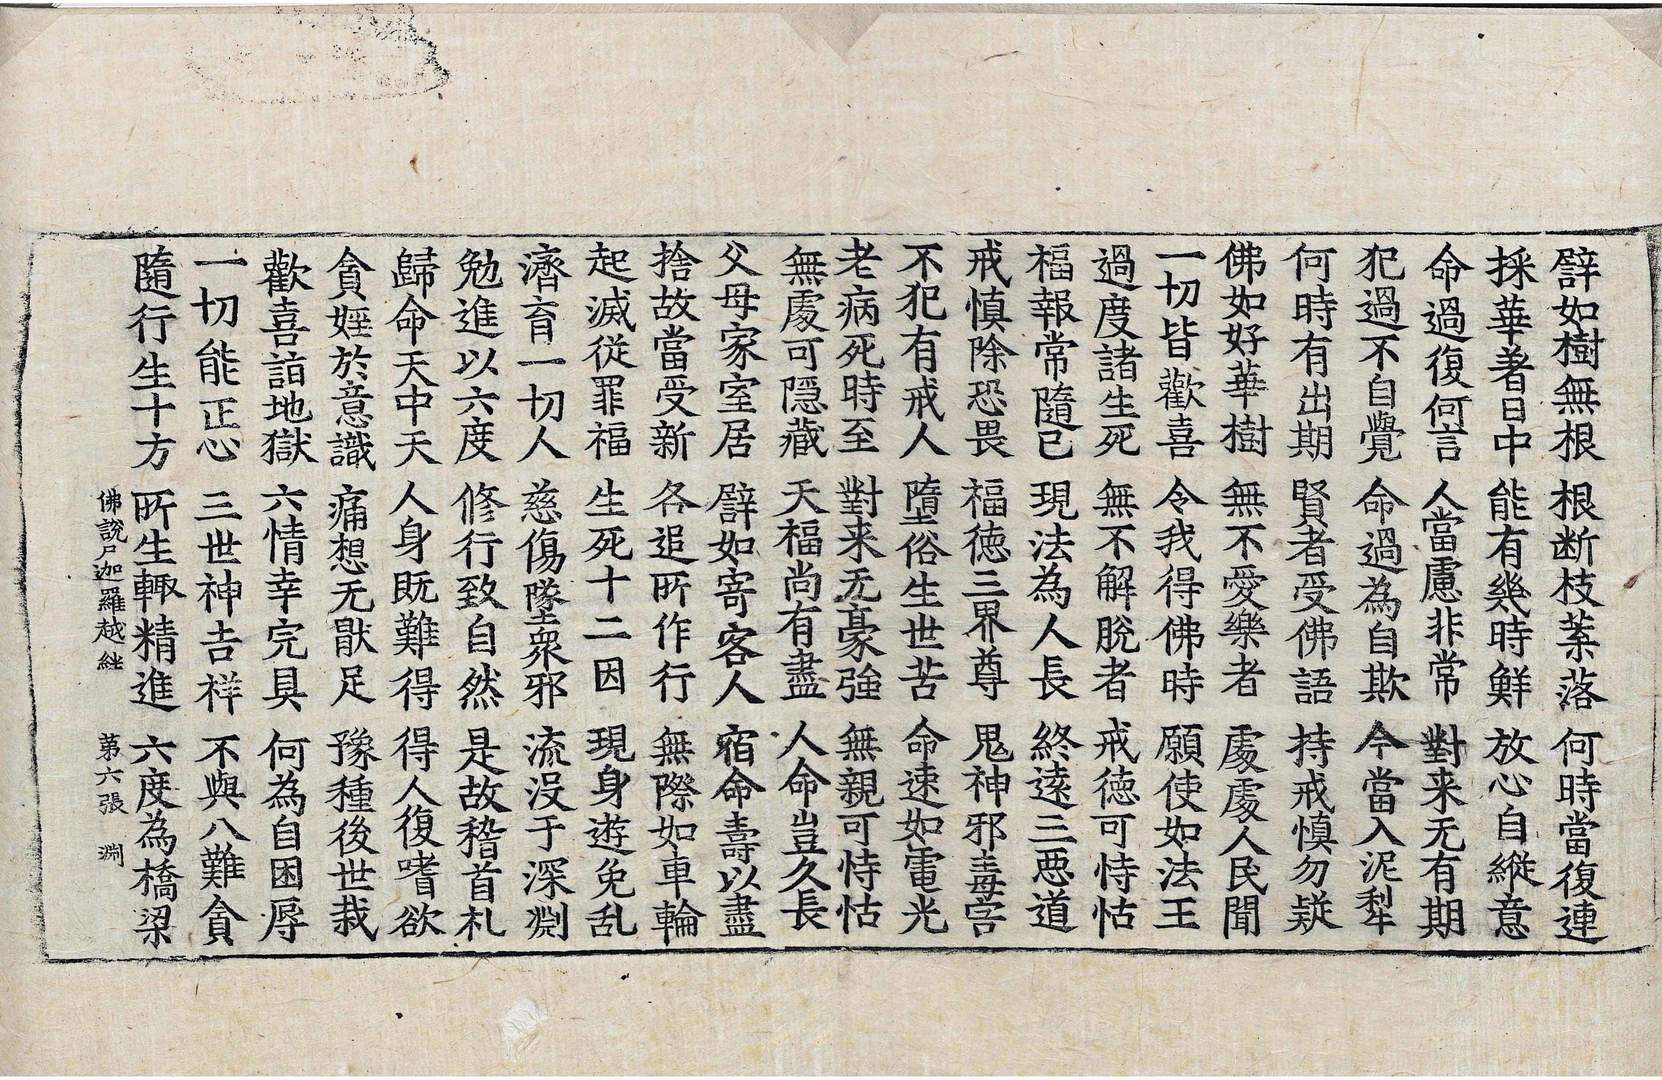 辟如樹無根 根断枝葉落 何時當復連
採華著日中 能有幾時鮮 放心自縱意
命過復何言 人當慮非常 對来无有期
犯過不自覺 命過為自欺 今當入泥犁
何時有出期 賢者受佛語 持戒慎勿疑
佛如好華樹 無不愛樂者 處處人民聞
一切皆歡喜 令我得佛時 願使如法王
過度諸生死 無不解脫者 戒徳可恃怙
福報常隨已 現法為人長 終遠三惡道
戒慎除恐畏 福徳三界尊 鬼神邪毒害
不犯有戒人 墮俗生世苦 命速如電光
老病死時至 對来无豪強 無親可恃怙
無處可隱藏 天福尚有盡 人命豈久長
父母家室居 辟如寄客人 宿命壽以盡
捨故當受新 各追所作行 無際如車輪
起滅從罪福 生死十二因 現身遊免乱
濟育一切人 慈傷墜眾邪 流没于深渊
勉進以六度 修行致自然 是故稽首礼
歸命天中天 人身既難得 得人復嗜欲
貪婬於意識 痛想无猒足 豫種後世栽
歡喜詣地獄 六情幸完具 何為自困辱
一切能正心 三世神吉祥 不與八難貪
隨行生十方 所生輙精進 六度為橋梁
佛說尸迦羅越經 第六張 渊